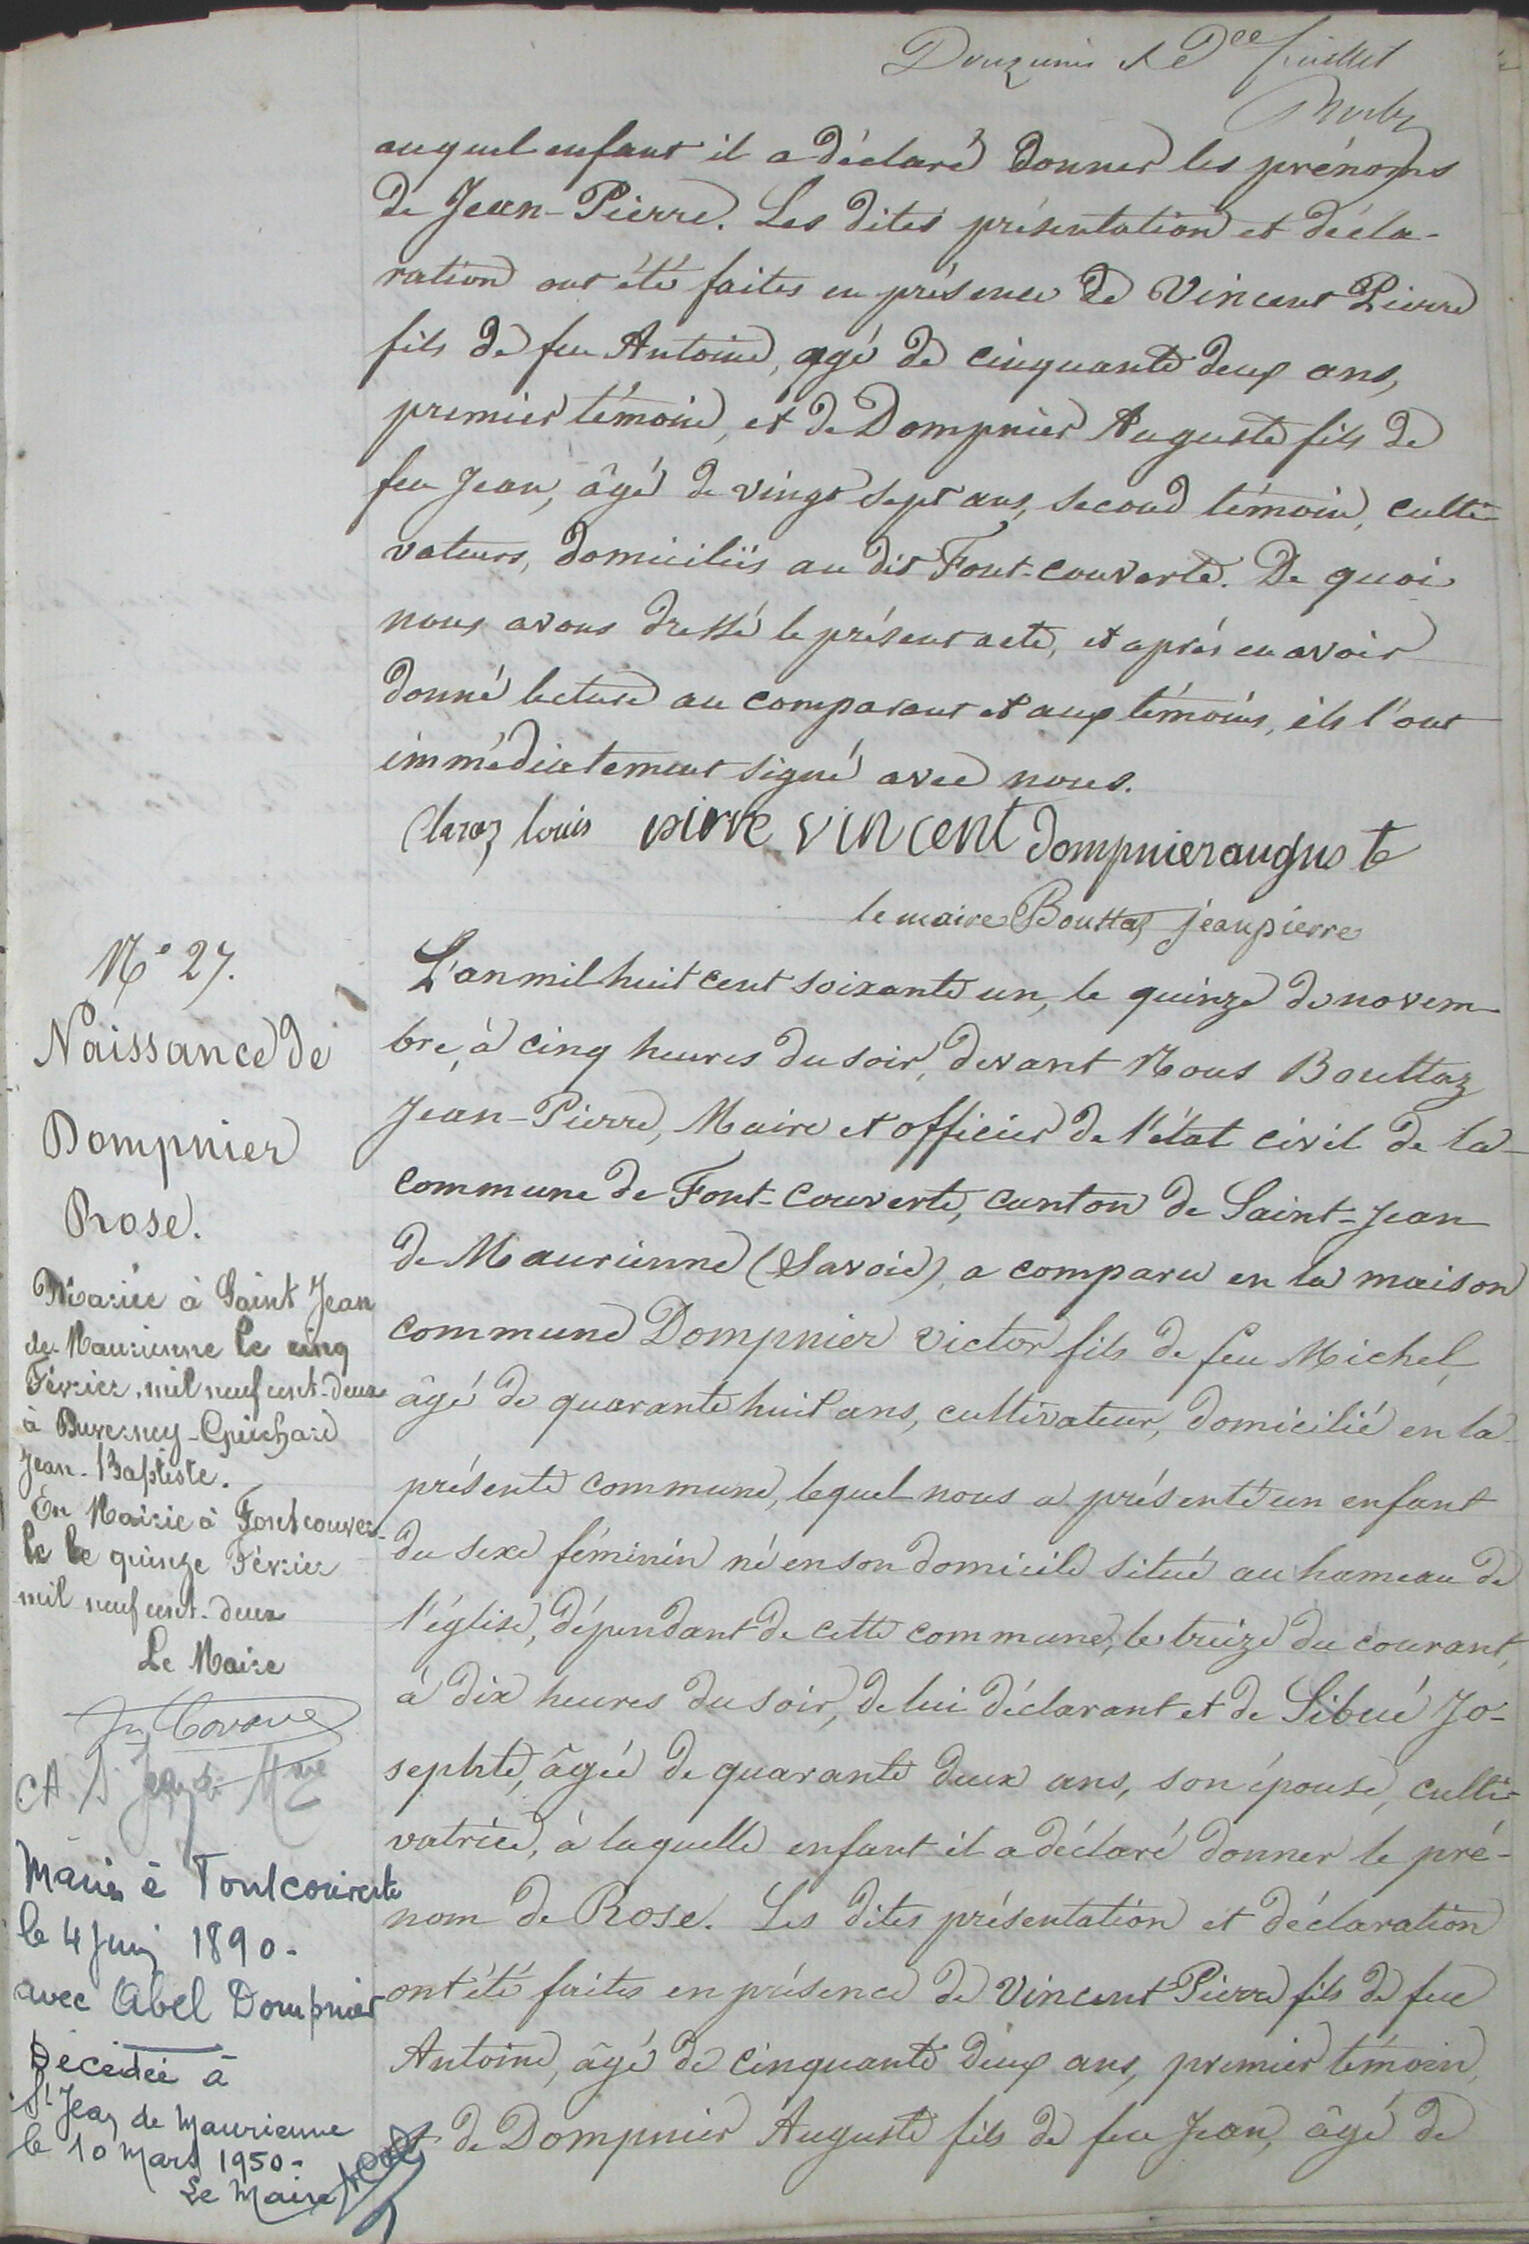 Douzième et Der feuillet
auquel enfant il a déclaré donner les prénoms
de Jean-Pierre. Les dites présentation et décla-
ration ont été faites en présence de Vincent Pierre
fils de feu Antoine, agé de cinquante deux ans,
premier témoin, et de Dompnier Auguste fils de
feu Jean, âgé de vingt sept ans, second témoin, culti-
vateurs, domiciliés au dit Font-couverte. De quoi
nous avons dressé le présent acte, et après en avoir
donné lecture au comparant et aux témoins, ils l'ont
immédiatement signé avec nous.
Claraz louis pierre vincent dompnier auguste
le maire Bouttaz jeanpierre
N° 27.
Naissance de
Dompnier
Rose.
Mariée à Saint Jean
de Maurienne le cinq
Février mil neuf cent-deux
à Duverney-Guichard
Jean-Baptiste.
En Mairie à Fontcouver-
te le quinze Février
mil neuf cent-deux
Le Maire
CA St Jean de Mne
Mariée à Fontcouverte
le 4 Juin 1890-
avec Abel Dompnier
Décédée à
St Jean de Maurienne
le 10 Mars 1950-
Le Maire
L'an mil huit cent soixante un, le quinze de novem-
bre, à cinq heures du soir, devant Nous Bouttaz
Jean-Pierre, Maire et officier de l'état civil de la
commune de Font-Couverte, canton de Saint-Jean
de Maurienne (Savoie), a comparu en la maison
commune Dompnier Victor fils de feu Michel,
âgé de quarante huit ans, cultivateur, domicilié en la
présente commune, lequel nous a présenté un enfant
du sexe féminin né en son domicile situé au hameau de
l'église, dépendant de cette commune, le treize du courant,
à dix heures du soir, de lui déclarant et de Sibué Jo-
sephte, âgée de quarante deux ans, son épouse, culti-
vatrice, à laquelle enfant il a déclaré donner le pré-
nom de Rose. Les dites présentation et déclaration
ont été faites en présence de Vincent Pierre fils de feu
Antoine, âgé de cinquante deux ans, premier témoin,
et de Dompnier Auguste fils de feu Jean, âgé de